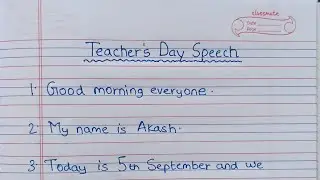 classmate
Date
Page
Teacher's Day Speech
1. Good morning everyone.
2. My name is Akash.
3. Today is 5th September and we